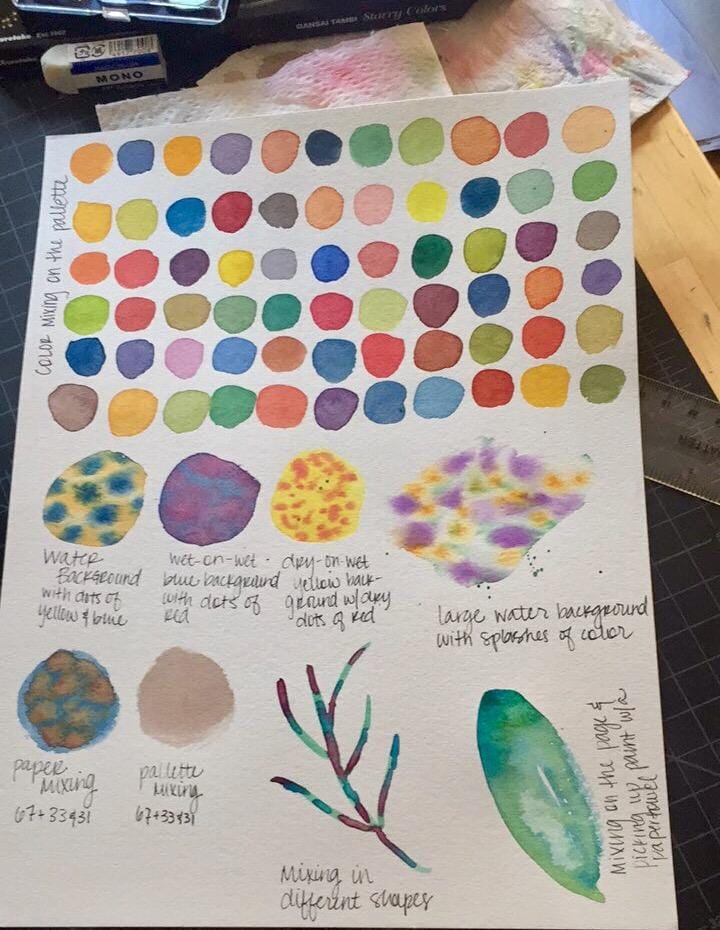 GANSAI TAMBI Starry Colors
MONO
Color Mixing on the pallette
Water
Background
with dots of
yellow & blue
wet-on-wet -
blue background
with dots of
red
dry-on-wet
yellow back-
ground w/dry
dots of red
large water background
with splashes of color
paper
mixing
67+33&31
pallette
mixing
67+33&31
Mixing in
different shapes
Mixing on the page &
picking up paint w/a
papertowel